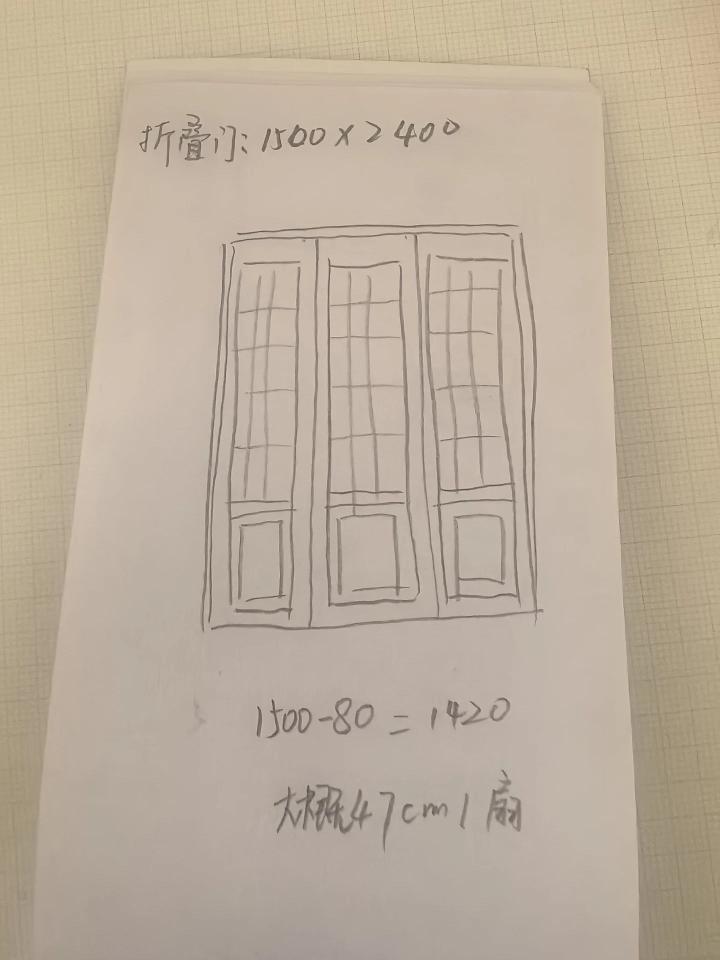 折叠门:1500×2400
1500-80=1420
大概47cm1扇